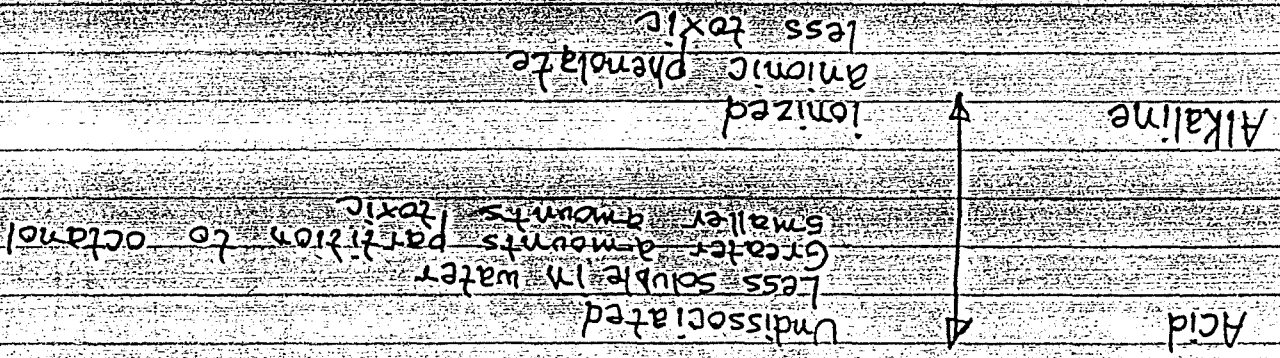 Acid Undissociated
Less soluble in water
Greater amounts partition to octanol
Smaller amounts toxic
Alkaline ionized
anionic phenolate
less toxic